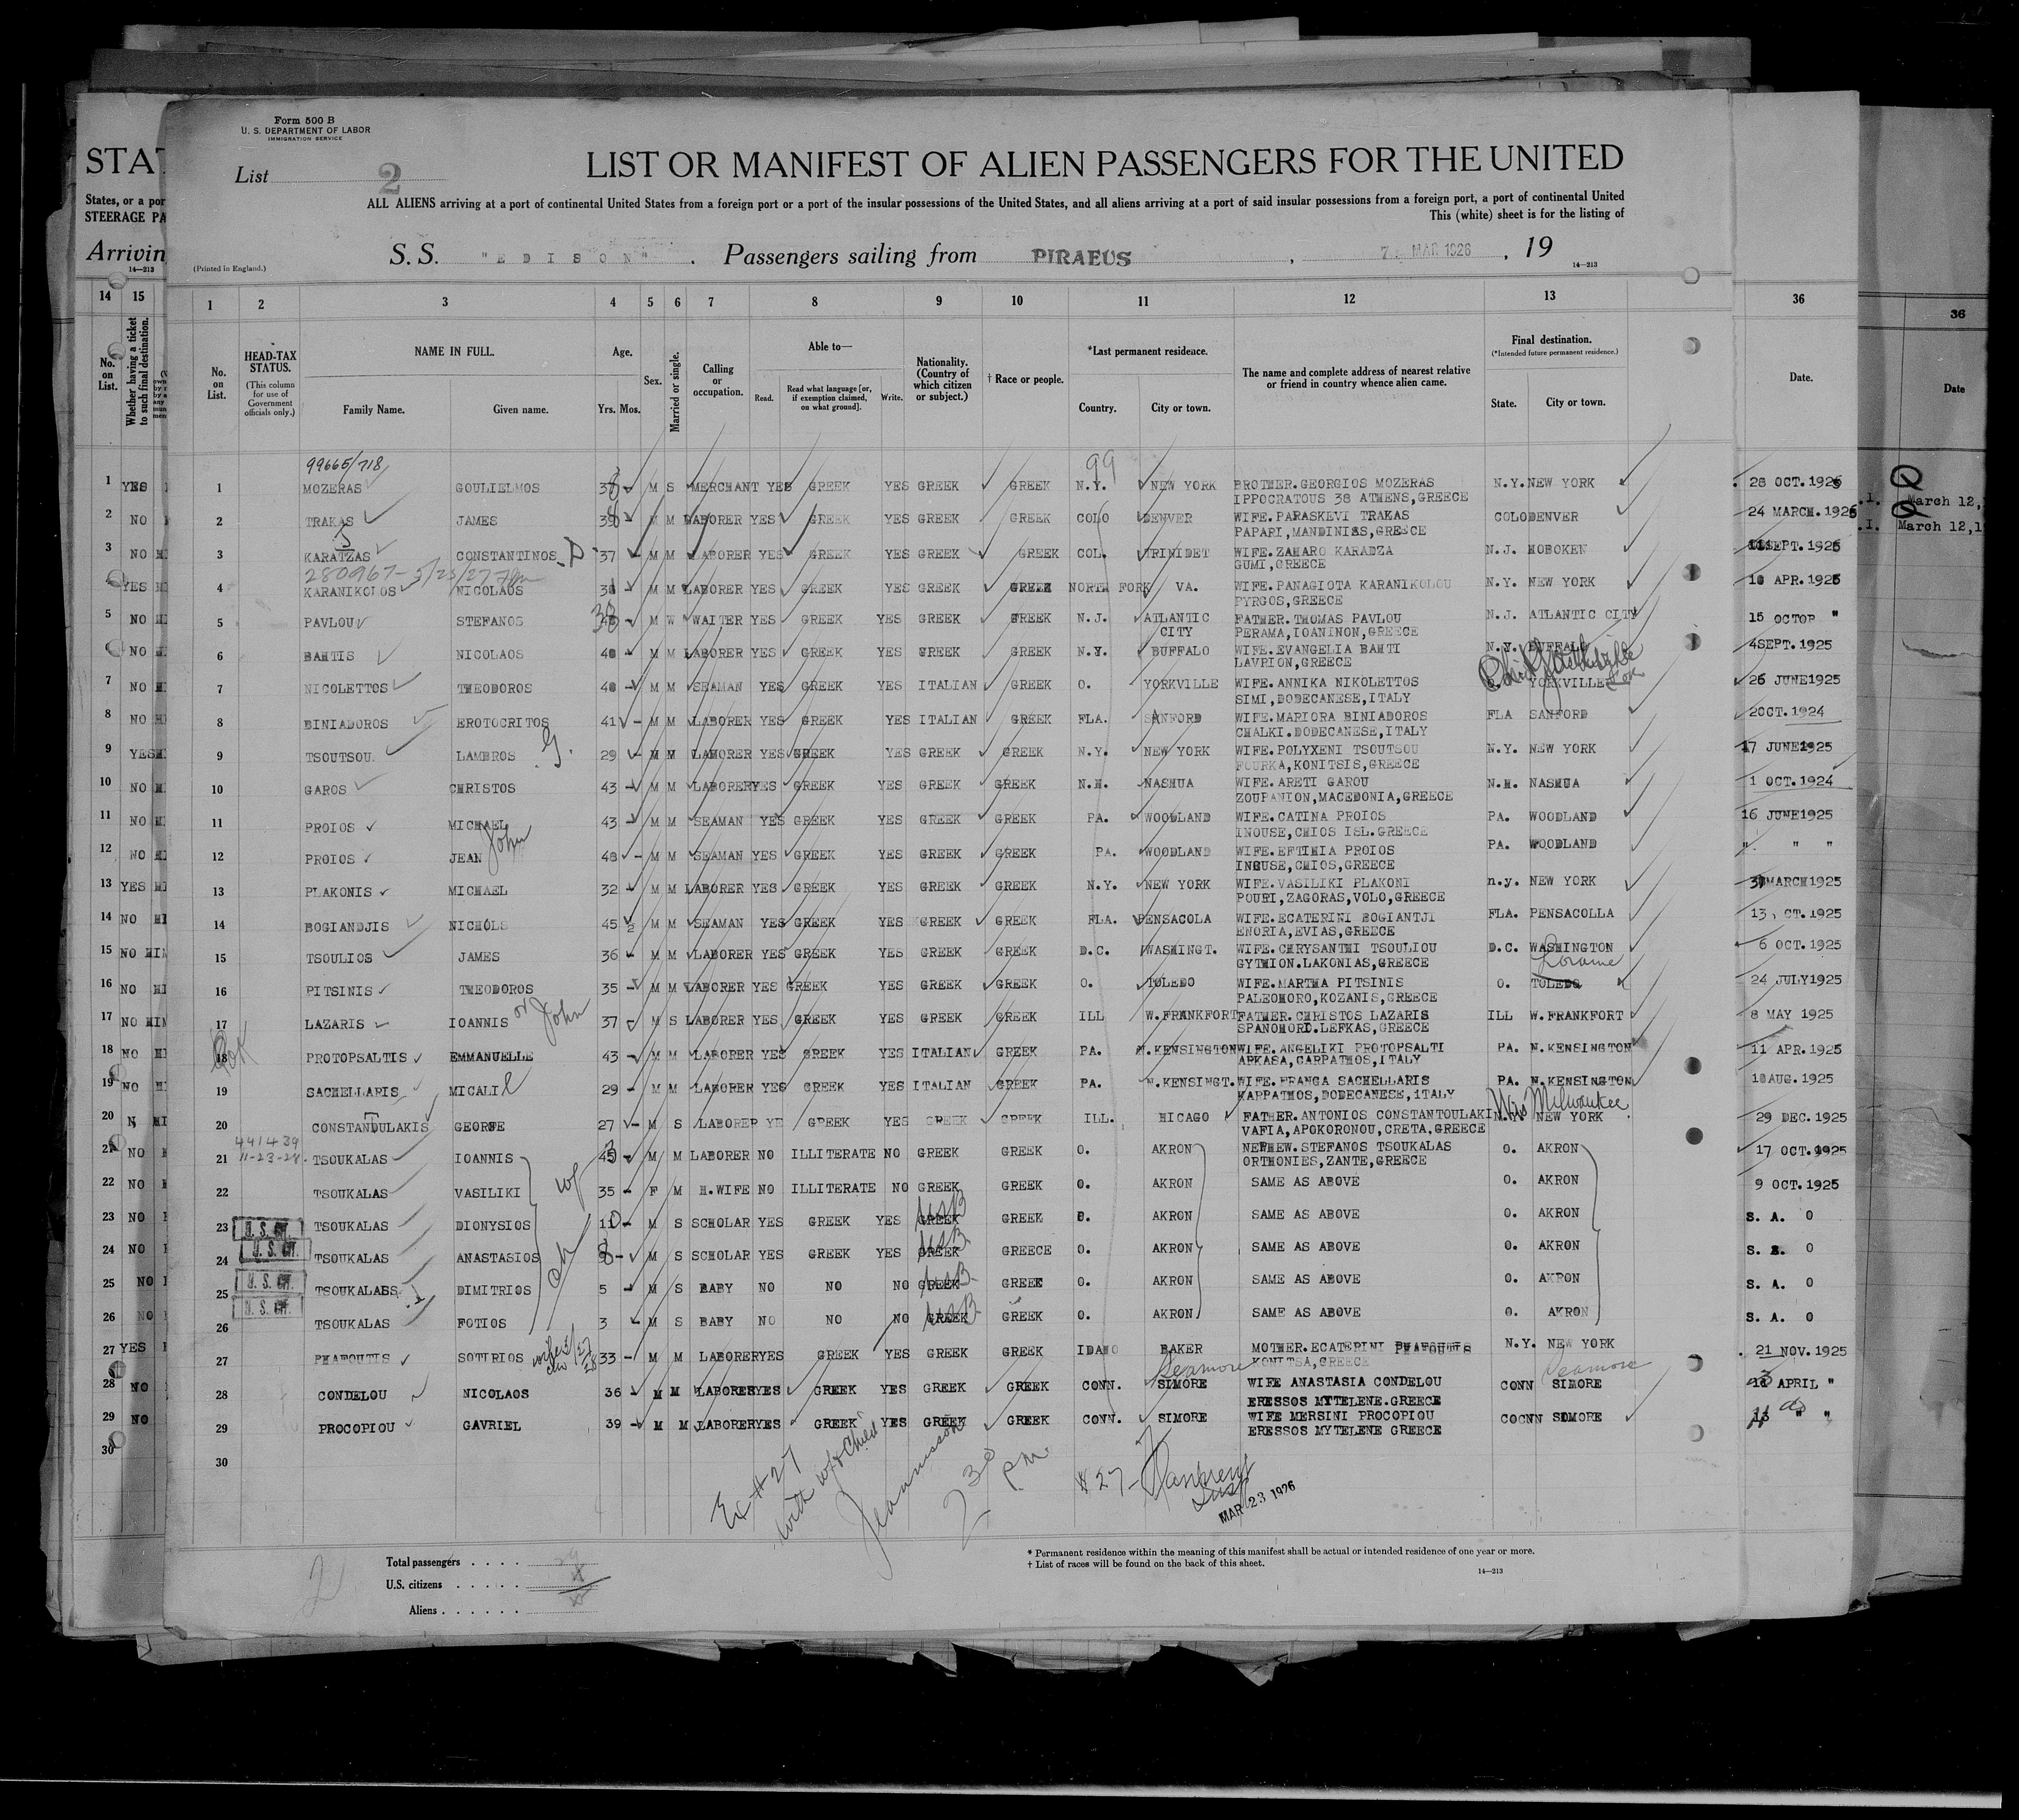 Form 500 B
U. S. DEPARTMENT OF LABOR
IMMIGRATION SERVICE
List 2
LIST OR MANIFEST OF ALIEN PASSENGERS FOR THE UNITED
ALL ALIENS arriving at a port of continental United States from a foreign port or a port of the insular possessions of the United States, and all aliens arriving at a port of said insular possessions from a foreign port, a port of continental United
This (white) sheet is for the listing of
STAT
States, or a por
STEERAGE PA
Arrivin
14—213
(Printed in England.)
S. S. "EDISON". Passengers sailing from PIRAEUS, 7 MAR 1926, 19
14—213
14 15 1 2 3 4 5 6 7 8 9 10 11 12 13 36 36
No. on List. Whether having a ticket to such final destination.
No. on List. HEAD-TAX STATUS. (This column for use of Government officials only.) NAME IN FULL. Family Name. Given name. Age. Yrs. Mos. Sex. Married or single. Calling or occupation. Able to— Read. Read what language [or, if exemption claimed, on what ground]. Write. Nationality. (Country of which citizen or subject.) † Race or people. *Last permanent residence. Country. City or town. The name and complete address of nearest relative or friend in country whence alien came. Final destination. (*Intended future permanent residence.) State. City or town. Date. Date
99665/718 99
1 YES 1 MOZERAS GOULIELMOS M S MERCHANT YES GREEK YES GREEK GREEK N.Y. NEW YORK BROTHER.GEORGIOS MOZERAS N.Y. NEW YORK 28 OCT. 1925
IPPOCRATOUS 38 ATHENS,GREECE March 12,
2 NO 2 TRAKAS JAMES 39 M M LABORER YES GREEK YES GREEK GREEK COLO DENVER WIFE.PARASKEVI TRAKAS COLO DENVER 24 MARCH.1925
PAPARI,MANDINIAS,GREECE March 12,1
3 NO 3 KARATZAS CONSTANTINOS 37 M M LABORER YES GREEK YES GREEK GREEK COL. TRINIDET WIFE.ZAHARO KARADZA N.J. HOBOKEN SEPT.1925
GUMI,GREECE
280967-5/23/27
4 YES 4 KARANIKOLOS NICOLAOS M M LABORER YES GREEK YES GREEK GREEK NORTH FORK VA. WIFE.PANAGIOTA KARANIKOLOU N.Y. NEW YORK APR.1925
PYRGOS,GREECE
5 NO 5 PAVLOU STEFANOS 38 M W WAITER YES GREEK YES GREEK GREEK N.J. ATLANTIC CITY FATHER.THOMAS PAVLOU N.J. ATLANTIC CITY 15 OCTOP "
PERAMA,IOANINON,GREECE
6 NO 6 BAHTIS NICOLAOS M M LABORER YES GREEK YES GREEK GREEK N.Y. BUFFALO WIFE.EVANGELIA BAHTI N.Y. BUFFALO 4SEPT.1925
LAVRION,GREECE
7 NO 7 NICOLETTOS THEODOROS M M SEAMAN YES GREEK YES ITALIAN GREEK O. YORKVILLE WIFE.ANNIKA NIKOLETTOS YORKVILLE 26 JUNE1925
SIMI,DODECANESE,ITALY
8 NO 8 BINIADOROS EROTOCRITOS 41 M M LABORER YES GREEK YES ITALIAN GREEK FLA. SANFORD WIFE.MARIORA BINIADOROS FLA SANFORD 2OCT.1924
CHALKI.DODECANESE,ITALY
9 YES 9 TSOUTSOU LAMBROS G. 29 M M LABORER YES GREEK YES GREEK GREEK N.Y. NEW YORK WIFE.POLYXENI TSOUTSOU N.Y. NEW YORK 17 JUNE1925
FOURKA,KONITSIS,GREECE
10 NO 10 GAROS CHRISTOS 43 M M LABORER YES GREEK YES GREEK GREEK N.H. NASHUA WIFE.ARETI GAROU N.H. NASHUA 1 OCT.1924
ZOUPANION,MACEDONIA,GREECE
11 NO 11 PROIOS MICHAEL 43 M M SEAMAN YES GREEK YES GREEK GREEK PA. WOODLAND WIFE.CATINA PROIOS PA. WOODLAND 16 JUNE1925
INOUSE,CHIOS ISL.GREECE
12 NO 12 PROIOS JEAN John 48 M M SEAMAN YES GREEK YES GREEK GREEK PA. WOODLAND WIFE.EFTIHIA PROIOS PA. WOODLAND " " "
INOUSE,CHIOS,GREECE
13 YES 13 PLAKONIS MICHAEL 32 M M LABORER YES GREEK YES GREEK GREEK N.Y. NEW YORK WIFE.VASILIKI PLAKONI n.y. NEW YORK MARCH1925
POURI,ZAGORAS,VOLO,GREECE
14 NO 14 BOGIANDJIS NICHOLS 45 M M SEAMAN YES GREEK YES GREEK GREEK FLA. PENSACOLA WIFE.ECATERINI BOGIANTJI FLA. PENSACOLLA 13 CT.1925
ENORIA,EVIAS,GREECE
15 NO 15 TSOULIOS JAMES 36 M M LABORER YES GREEK YES GREEK GREEK D.C. WASHINGT. WIFE.CHRYSANTHI TSOULIOU D.C. WASHINGTON 6 OCT.1925
GYTHION.LAKONIAS,GREECE Loraine
16 NO 16 PITSINIS THEODOROS 35 M M LABORER YES GREEK YES GREEK GREEK O. TOLEDO WIFE.MARTHA PITSINIS O. TOLEDO 24 JULY1925
PALEOHORO,KOZANIS,GREECE
17 NO 17 LAZARIS IOANNIS or John 37 M S LABORER YES GREEK YES GREEK GREEK ILL W.FRANKFORT FATHER.CHRISTOS LAZARIS ILL W.FRANKFORT 8 MAY 1925
SPANOHORD.LEFKAS,GREECE
18 NO 18 PROTOPSALTIS EMMANUELLE 43 M M LABORER YES GREEK YES ITALIAN GREEK PA. N.KENSINGTON WIFE.ANGELIKI PROTOPSALTI PA. N.KENSINGTON 11 APR.1925
ARKASA,CARPATHOS,ITALY
19 NO 19 SACHELLARIS MICALI 29 M M LABORER YES GREEK YES ITALIAN GREEK PA. N.KENSINGT. WIFE.FRANGA SACHELLARIS PA. N.KENSINGTON AUG.1925
KARPATHOS,DODECANESE,ITALY Wis Milwaukee
20 N 20 CONSTANTDULAKIS GEORFE 27 M S LABORER YE GREEK YES GREEK GREEK ILL. HICAGO FATHER.ANTONIOS CONSTANTOULAKI N.Y. NEW YORK 29 DEC.1925
VAFIA,APOKORONOU,CRETA,GREECE
441439
11-23-28.
21 NO 21 TSOUKALAS IOANNIS M M LABORER NO ILLITERATE NO GREEK GREEK O. AKRON NEPHEW.STEFANOS TSOUKALAS O. AKRON 17 OCT.1925
ORTHONIES,ZANTE,GREECE
22 NO 22 TSOUKALAS VASILIKI 35 F M H.WIFE NO ILLITERATE NO GREEK GREEK O. AKRON SAME AS ABOVE O. AKRON 9 OCT.1925
23 NO 23 U. S. CIT. TSOUKALAS DIONYSIOS M S SCHOLAR YES GREEK YES GREEK USB GREEK O. AKRON SAME AS ABOVE O. AKRON S. A. 0
24 NO 24 U. S. CIT. TSOUKALAS ANASTASIOS M S SCHOLAR YES GREEK YES GREEK USB GREECE O. AKRON SAME AS ABOVE O. AKRON S. A. 0
25 NO 25 U. S. CIT. TSOUKALASS DIMITRIOS 5 M S BABY NO NO NO GREEK USB GREEK O. AKRON SAME AS ABOVE O. AKRON S. A. 0
26 NO 26 U. S. CIT. TSOUKALAS FOTIOS 3 M S BABY NO NO NO GREEK USB GREEK O. AKRON SAME AS ABOVE O. AKRON S. A. 0
27 YES 27 PHAFOUTIS SOTIRIOS 33 M M LABORER YES GREEK YES GREEK GREEK IDAHO BAKER MOTHER.ECATERINI PHAFOUTIS N.Y. NEW YORK 21 NOV.1925
KONITSA,GREECE
Seamore Seamore
28 NO 28 CONDELOU NICOLAOS 36 M M LABORER YES GREEK YES GREEK GREEK CONN. SIMORE WIFE ANASTASIA CONDELOU CONN SIMORE APRIL "
ERESSOS MYTELENE.GREECE
29 NO 29 PROCOPIOU GAVRIEL 39 M M LABORER YES GREEK YES GREEK GREEK CONN. SIMORE WIFE MERSINI PROCOPIOU COCNN SIMORE " "
ERESSOS MYTELENE GREECE
30 30
Ex #27
with wf & Child
2 30 pm
#27-
MAR 23 1926
Total passengers . . . .
U.S. citizens . . . . .
Aliens . . . . . .
2
* Permanent residence within the meaning of this manifest shall be actual or intended residence of one year or more.
† List of races will be found on the back of this sheet.
14—213